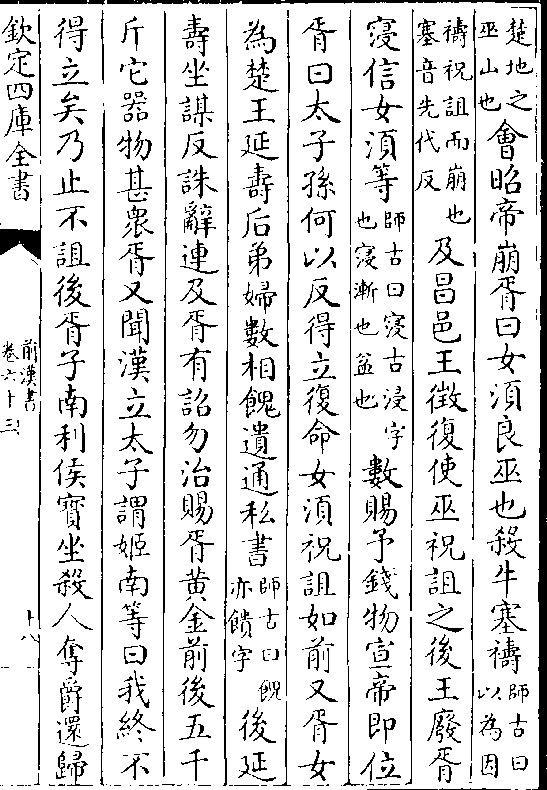 楚地之巫山也會昭帝崩胥曰女湏良巫也殺牛塞禱師古曰以為因
禱祝詛而崩也塞音先代反及昌邑王徵復使巫祝詛之後王廢胥
寖信女湏等師古曰寖古浸字也寖漸也益也數賜予錢物宣帝即位
胥曰太子孫何以反得立復命女湏祝詛如前又胥女
為楚王延壽后弟婦數相餽遺通私書師古曰餽亦饋字後延
壽坐謀反誅辭連及胥有詔勿治賜胥黄金前後五千
斤它器物甚衆胥又聞漢立太子謂姬南等曰我終不
得立矣乃止不詛後胥子南利侯寳坐殺人奪爵還歸
欽定四庫全書
前漢書
卷六十三
十八